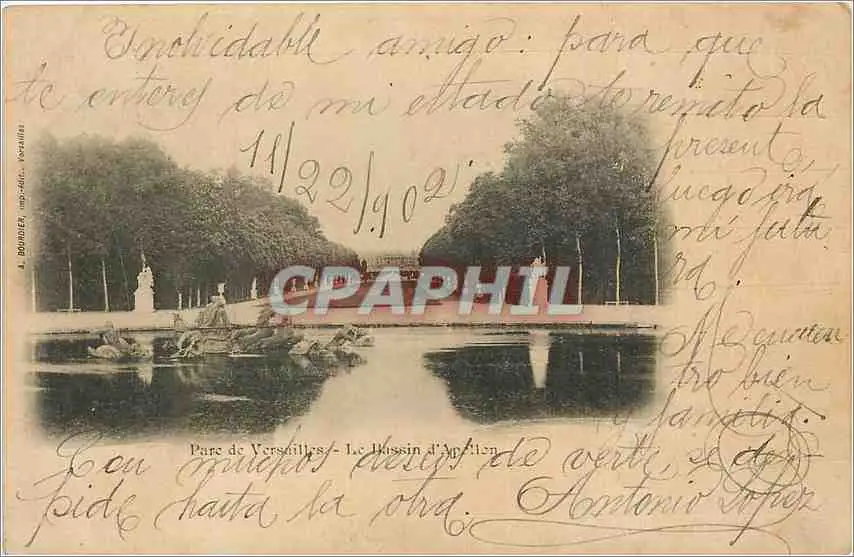 Inolvidable amigo: para que
te enteres de mi estado te remito la
present,
luego irá
mi futu
ra.
11/22/902.
Me encuen
tro bien
y familia.
Con muchos deseos de verte, se des-
pide hasta la otra. Antonio Lopez
A. BOURDIER, imp.-édit., Versailles
CPAPHIL
Parc de Versailles - Le Bassin d'Apollon